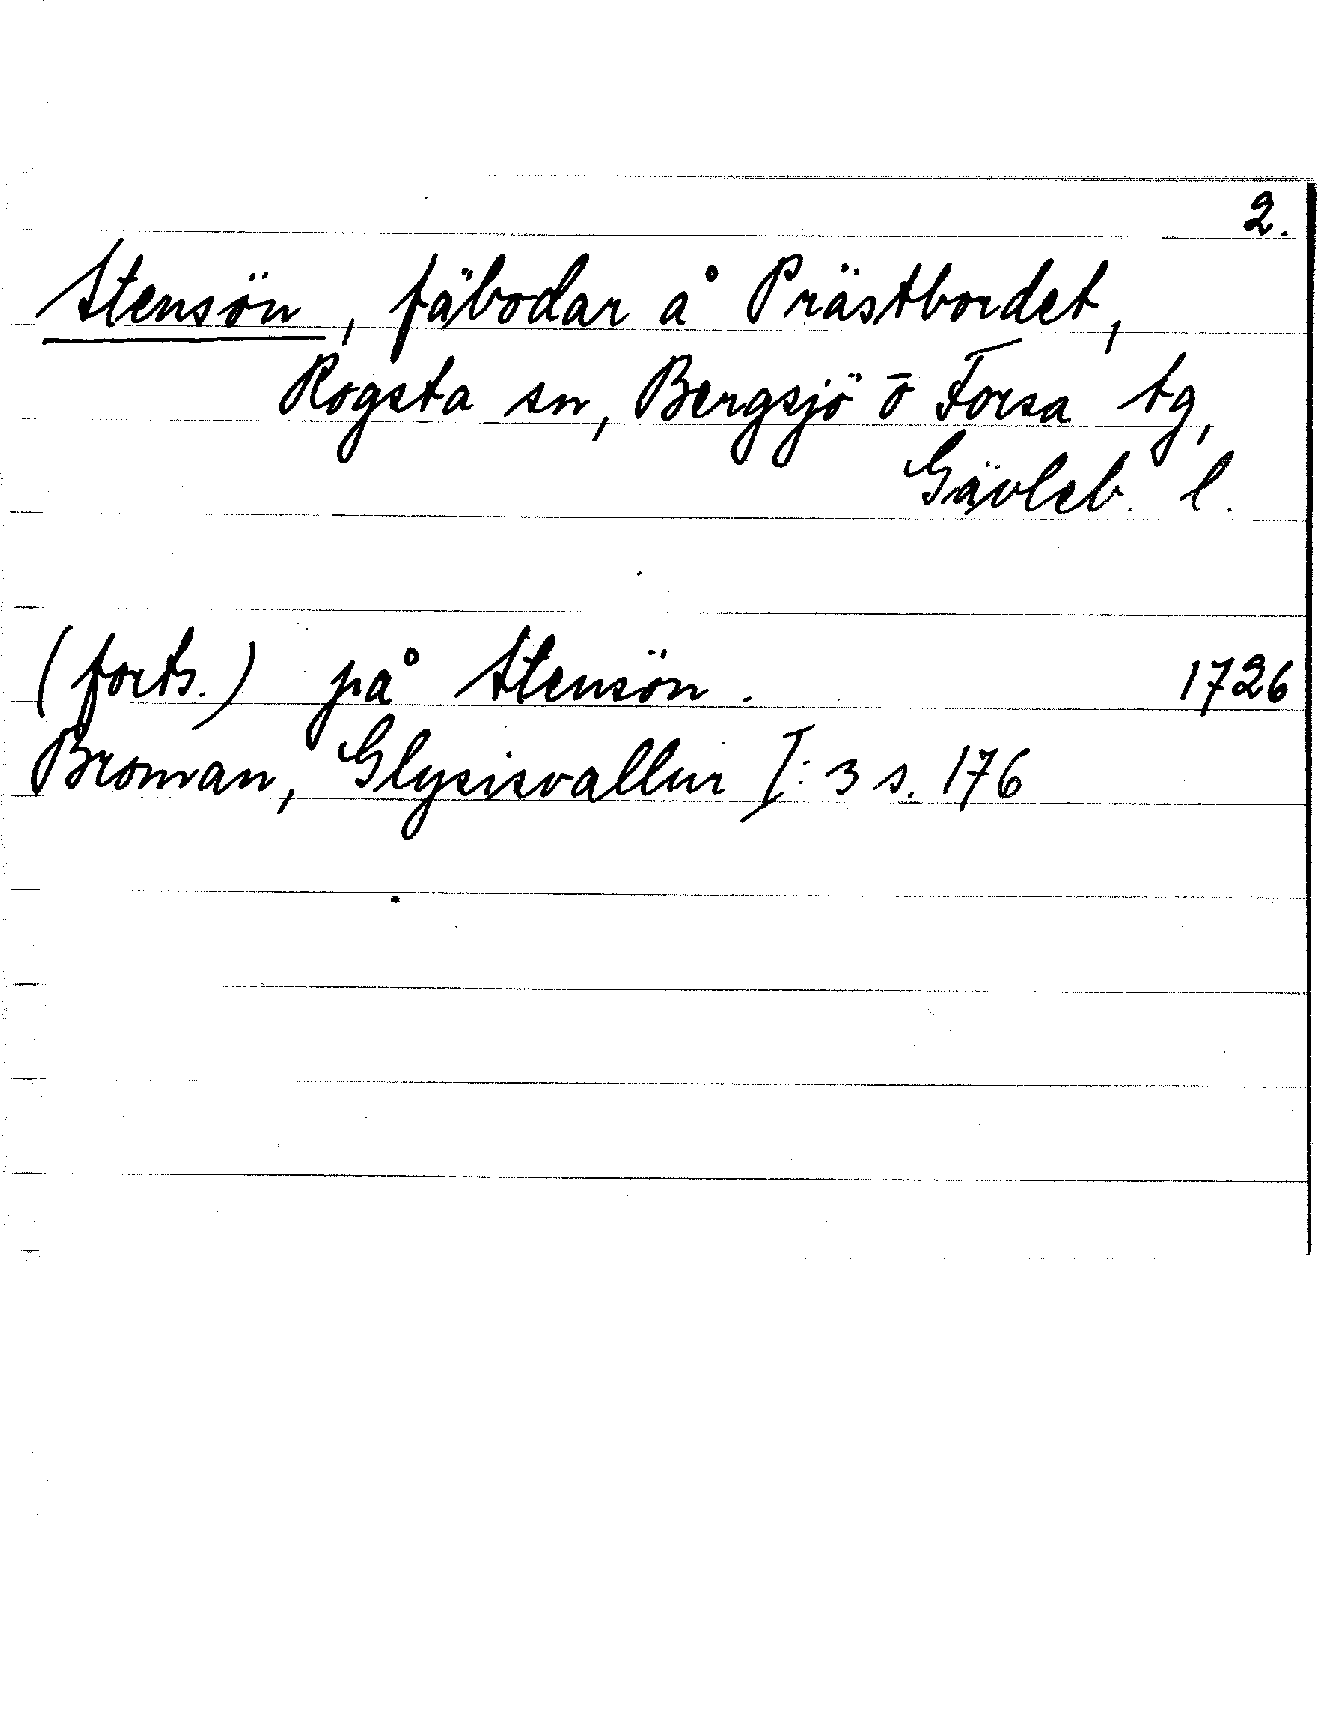 2.
Stensön, fäbodar å Prästbordet,
Rogsta sn, Bergsjö o Forsa tg,
Gävleb. l.
(forts.) på Stensön. 1726
Broman, Glysisvallur I:3 s. 176